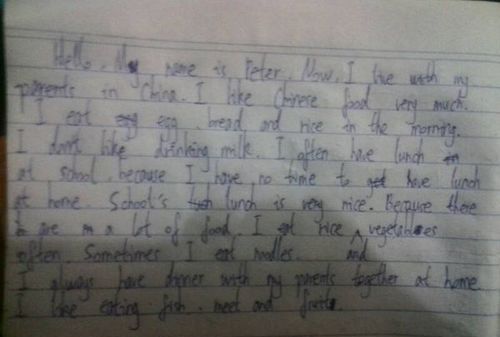 Hello. My name is Peter. Now, I live with my
parents in China. I like Chinese food very much.
I eat egg bread and rice in the morning.
I don't like drinking milk. I often have lunch
at school, because I have no time to have lunch
at home. School's lunch is very nice. Because there
are in a lot of food. I eat rice and vegetables
often. Sometimes I eat noodles.
I always have dinner with my parents together at home.
I like eating fish. meet and fruits.